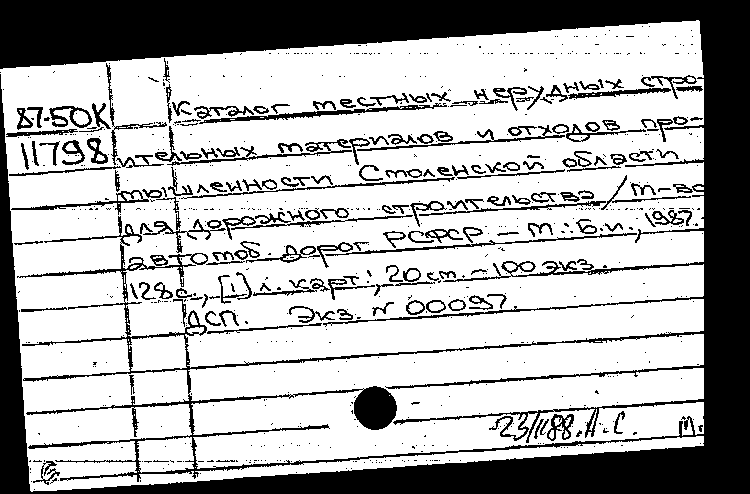 87-50К Каталог местных нерудных стро-
11798 ительных материалов и отходов про-
мышленности Смоленской области
для дорожного строительства / М-во
автомоб. дорог РСФСР. – М.: Б.и., 1987.
128 с., [1] л. карт.; 20 см. – 100 экз.
ДСП. Экз. N 00097.
23/II88. А.С. М.